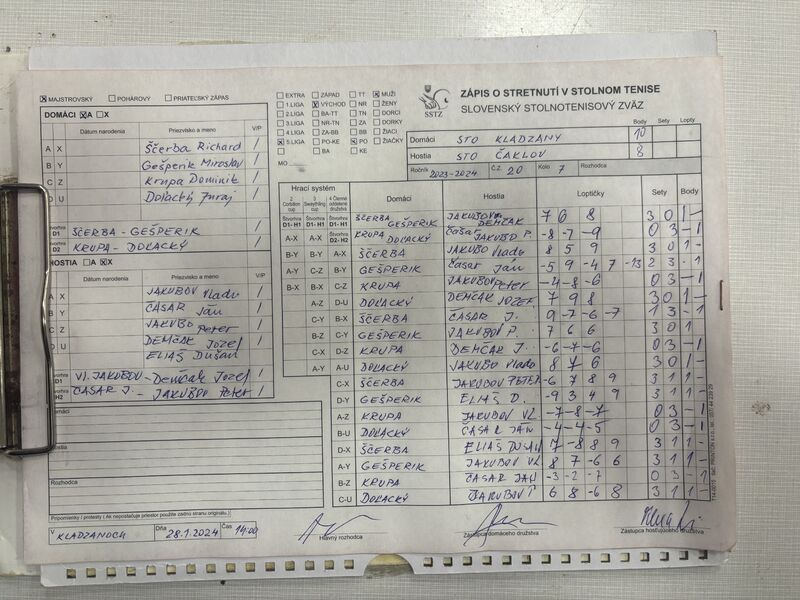 MAJSTROVSKÝ POHÁROVÝ PRIATEĽSKÝ ZÁPAS
EXTRA ZÁPAD TT MUŽI
1.LIGA VÝCHOD NR ŽENY
2.LIGA BA-TT TN DORCI
3.LIGA NR-TN ZA DORKY
4.LIGA ZA-BB BB ŽIACI
5.LIGA PO-KE PO ŽIAČKY
BA KE
MO
SSTZ
ZÁPIS O STRETNUTÍ V STOLNOM TENISE
SLOVENSKÝ STOLNOTENISOVÝ ZVÄZ
Body Sety Lopty
Domáci STO KLADZANY 10
Hostia STO ČAKLOV 8
Ročník 2023-2024 Č.Z. 20 Kolo 7 Rozhodca
DOMÁCI A X
Dátum narodenia Priezvisko a meno V/P
A X Ščerba Richard /
B Y Gešperik Miroslav /
C Z Krupa Dominik /
D U Dolacký Juraj /
D1 ŠČERBA - GEŠPERIK /
D2 KRUPA - DOLACKÝ /
HOSTIA A X
Dátum narodenia Priezvisko a meno V/P
A X JAKUBOV Vlado /
B Y ČASAR Ján /
C Z JAKUBOV Peter /
D U DEMČAK Jozef /
ELIAŠ Dušan
D1 Vl. JAKUBOV - Demčak Jozef /
H2 ČASAR J. - JAKUBOV Peter /
Domáci
Hostia
Rozhodca
Hrací systém Domáci Hostia Loptičky Sety Body
2 Corbillon cup 3 Swaythling cup 4 Členné oddelené družstvá
Štvorhra D1- H1 Štvorhra D1- H1 Štvorhra D1- H1 ŠČERBA GEŠPERIK JAKUBOV DEMČAK 7 6 8 3 0 1 -
A-X A-X Štvorhra D2- H2 KRUPA DOLACKÝ Časar JAKUBOV P. -8 -7 -9 0 3 - 1
B-Y B-Y A-X ŠČERBA JAKUBOV Vlado 8 5 9 3 0 1 -
A-Y C-Z B-Y GEŠPERIK Časar Ján -5 9 -4 7 -13 2 3 - 1
B-X B-X C-Z KRUPA JAKUBOV Peter -4 -8 -6 0 3 - 1
A-Z D-U DOLACKÝ DEMČAK JOZEF 7 9 8 3 0 1 -
C-Y B-X ŠČERBA ČASAR J. 9 -7 -6 -7 1 3 - 1
B-Z C-Y GEŠPERIK JAKUBOV P. 7 6 6 3 0 1
C-X D-Z KRUPA DEMČAK J. -6 -7 -6 0 3 - 1
A-Y A-U DOLACKÝ JAKUBOV Vlado 8 7 6 3 0 1 -
C-X ŠČERBA JAKUBOV PETER -6 7 8 9 3 1 1 -
D-Y GEŠPERIK ELIAŠ D. -9 3 4 9 3 1 1 -
A-Z KRUPA JAKUBOV VL -7 -8 -7 0 3 - 1
B-U DOLACKÝ ČASAR JÁN -4 -4 -5 0 3 - 1
D-X ŠČERBA ELIAŠ DUŠAN 7 -8 8 9 3 1 1 -
A-Y GEŠPERIK JAKUBOV VL 8 7 -6 6 3 1 1 -
B-Z KRUPA ČASAR JÁN -3 -2 -7 0 3 - 1
C-U DOLACKÝ JAKUBOV P 6 8 -6 8 3 1 1 -
Pripomienky / protesty ( Ak nepostačuje priestor použite zadnú stranu originálu.)
V KLADZANOCH Dňa 28.1.2024 Čas 14:00
Hlavný rozhodca Zástupca domáceho družstva Zástupca hosťujúceho družstva